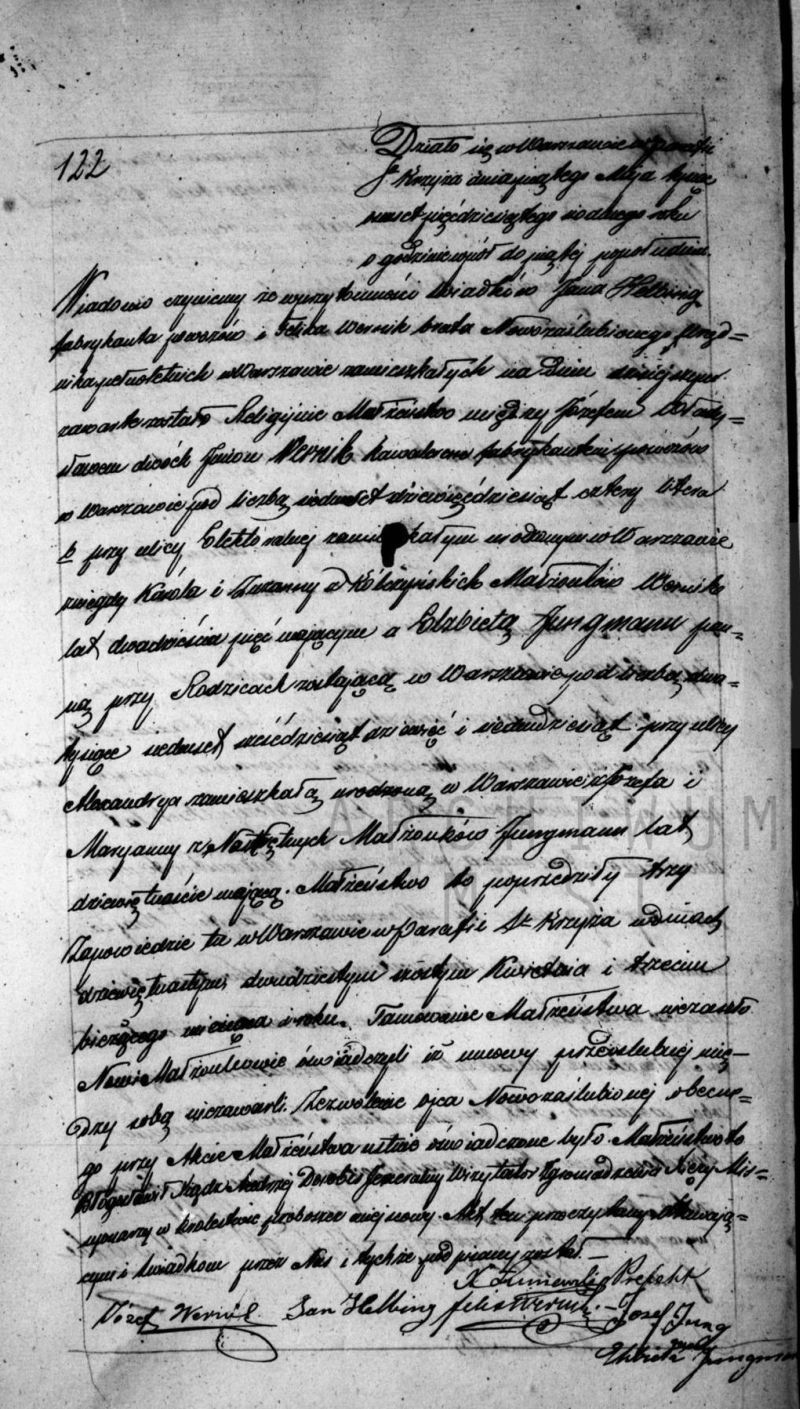 122
Działo się w Warszawie w parafii
Sgo Krzyża dnia piątego Maja tysiąc
osiemset pięćdziesiątego siódmego roku
o godzinie wpół do piątej popołudniu.
Wiadomo czyniemy że w przytomności świadków Jana Helbing
fabrykanta powozów i Felixa Wernik brata Nowozaślubionego Urzęd=
nika pełnoletnich w Warszawie zamieszkałych na dniu dzisiejszym
zawarte zostało Religijnie Małżeństwo między Józefem Włady=
sławem dwóch Imion Wernik kawalerem fabrykantem powozów
w Warszawie pod liczbą siedmset dziewięćdziesiąt cztery litera
b przy ulicy Elektoralnej zamieszkałym urodzonym w Warszawie
z niegdy Karola i Zuzanny z Kółczyńskich Małżonków Wernik
lat dwadzieścia pięć mającym a Elżbietą Jungmann pan=
ną przy Rodzicach zostającą w Warszawie pod liczbą dwa=
tysiące siedmset sześćdziesiąt dziewięć i siedmdziesiąt przy ulicy
Alexandrya zamieszkałą urodzoną w Warszawie z Józefa i
Maryanny z Małżonków Jungmann lat
dziewiętnaście mającą. Małżeństwo to poprzedziły trzy
Zapowiedzie tu w Warszawie w Parafii Sgo Krzyża w dniach
dziewiętnastym dwudziestym szóstym Kwietnia i trzecim
bieżącego miesiąca i roku. Tamowanie Małżeństwa nie zaszło
Nowi Małżonkowie oświadczyli iż umowy przedślubnej mię=
dzy sobą nie zawarli. Zezwolenie ojca Nowozaślubionej obecne=
go przy Akcie Małżeństwa ustnie oświadczone było. Małżeństwo to
Błogosławił Xiądz Andrzej Dorobis Jeneralny Wizytator Zgromadzenia Xięży Mis=
syonarzy w Królestwie proboszcz miejscowy. Akt ten przeczytany stawają=
cym i świadkom przez Nas i tychże podpisany został.—
X Prefekt
Józef Wernik Jan Helbing Felix Wernik.— Jozef Jung
mann
Elżbieta Jungmann